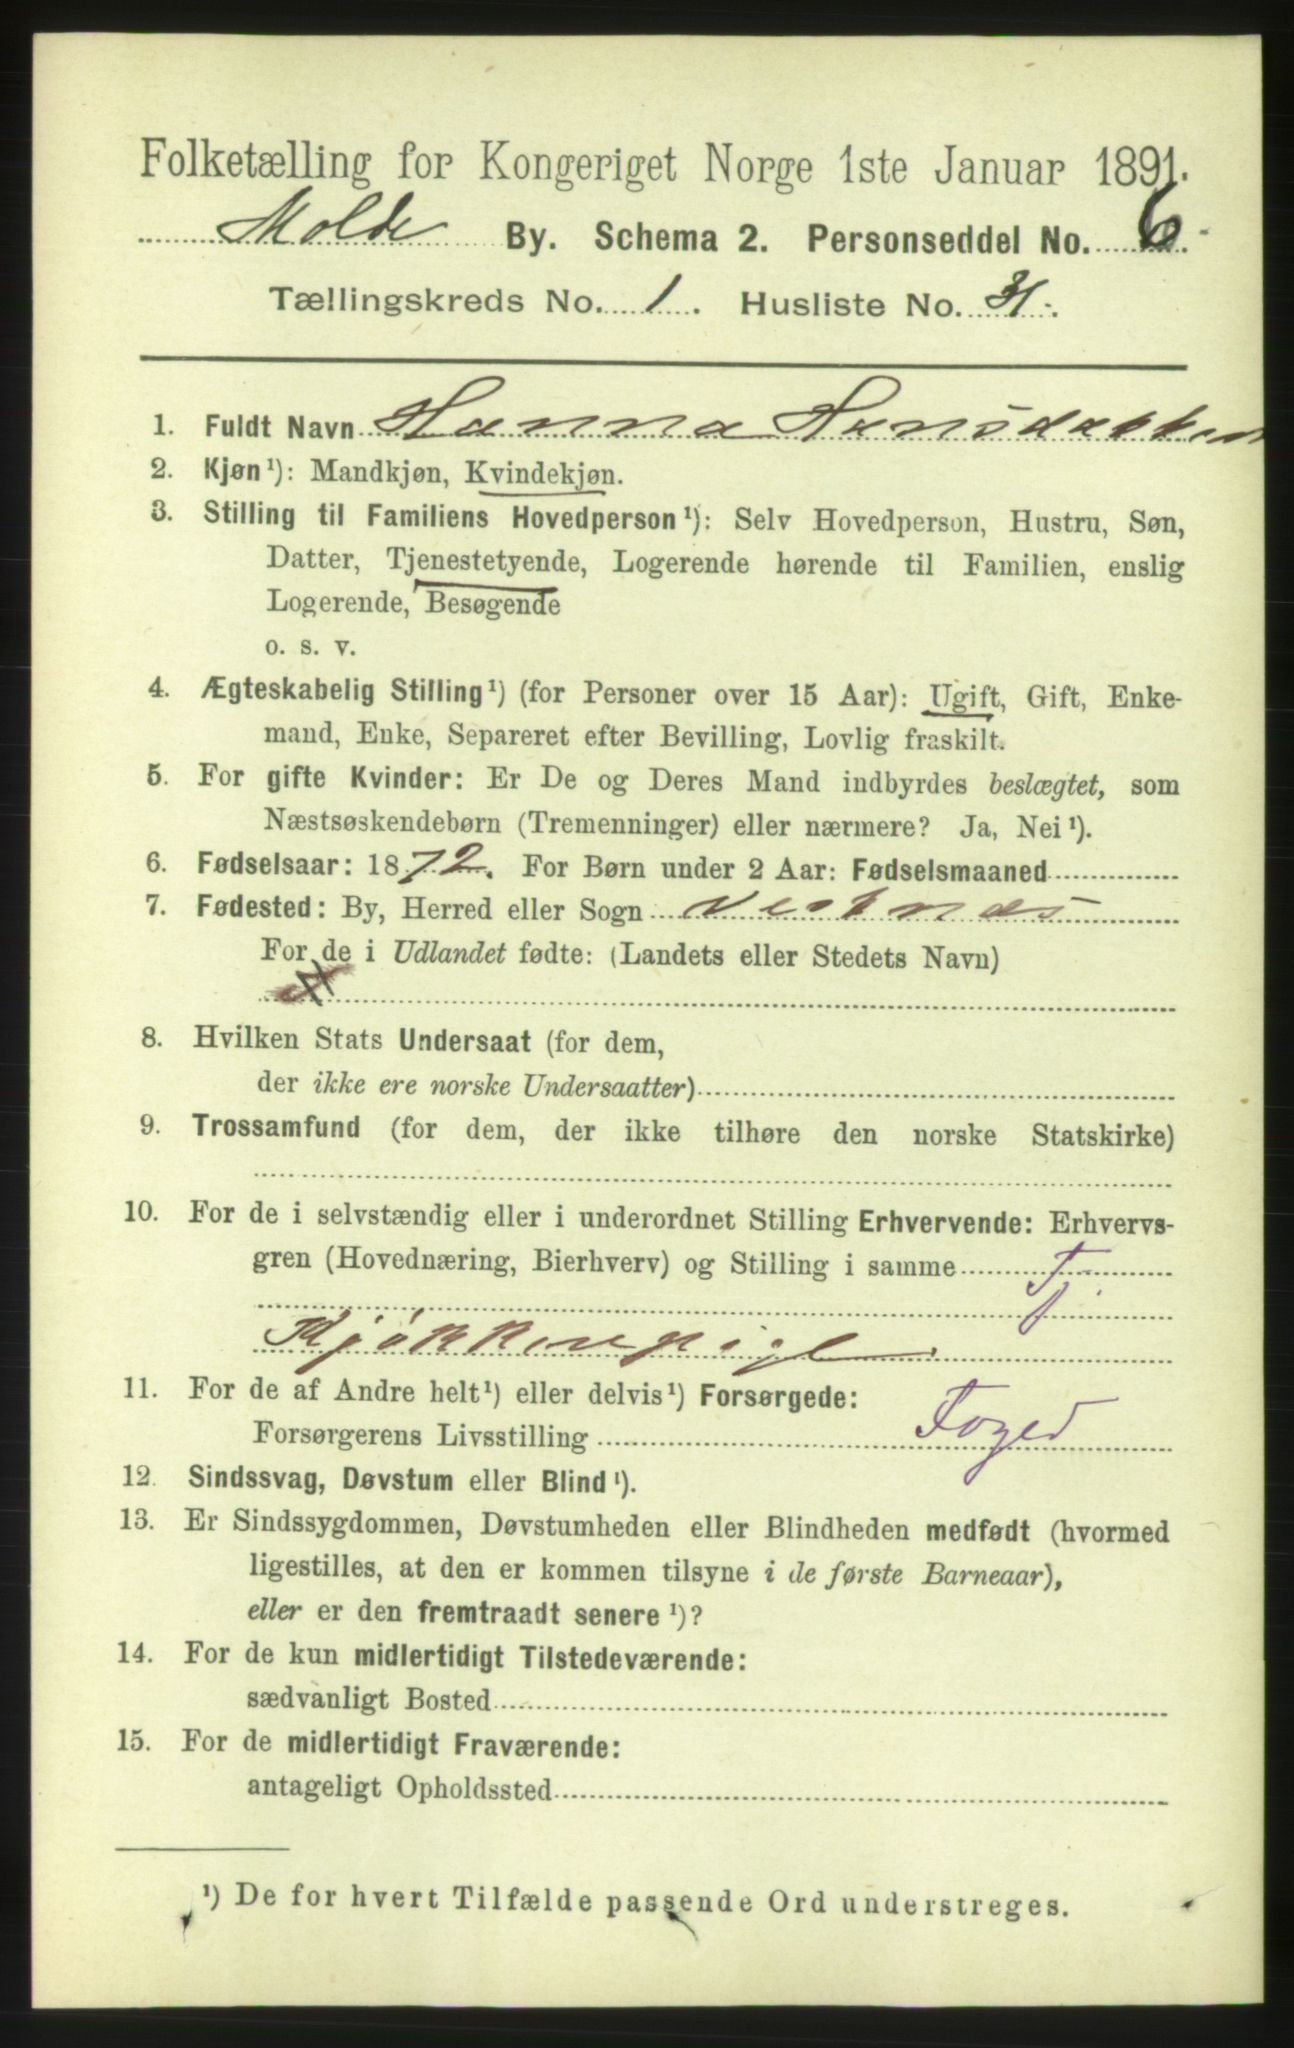 Folketælling for Kongeriget Norge 1ste Januar 1891.
Molde By. Schema 2. Personseddel No. 6
Tællingskreds No. 1. Husliste No. 31.
1. Fuldt Navn Hanna Hansdatter
2. Kjøn¹): Mandkjøn, Kvindekjøn.
3. Stilling til Familiens Hovedperson¹): Selv Hovedperson, Hustru, Søn,
Datter, Tjenestetyende, Logerende hørende til Familien, enslig
Logerende, Besøgende
o. s. v.
4. Ægteskabelig Stilling¹) (for Personer over 15 Aar): Ugift, Gift, Enke-
mand, Enke, Separeret efter Bevilling, Lovlig fraskilt.
5. For gifte Kvinder: Er De og Deres Mand indbyrdes beslægtet, som
Næstsøskendebørn (Tremenninger) eller nærmere? Ja, Nei¹).
6. Fødselsaar: 1872. For Børn under 2 Aar: Fødselsmaaned
7. Fødested: By, Herred eller Sogn Vestnes
For de i Udlandet fødte: (Landets eller Stedets Navn)
8. Hvilken Stats Undersaat (for dem,
der ikke ere norske Undersaatter)
9. Trossamfund (for dem, der ikke tilhøre den norske Statskirke)
10. For de i selvstændig eller i underordnet Stilling Erhvervende: Erhvervs-
gren (Hovednæring, Bierhverv) og Stilling i samme Tj
Kjøkkenpige
11. For de af Andre helt¹) eller delvis¹) Forsørgede:
Forsørgerens Livsstilling Foged
12. Sindssvag, Døvstum eller Blind¹).
13. Er Sindssygdommen, Døvstumheden eller Blindheden medfødt (hvormed
ligestilles, at den er kommen tilsyne i de første Barneaar),
eller er den fremtraadt senere¹)?
14. For de kun midlertidigt Tilstedeværende:
sædvanligt Bosted
15. For de midlertidigt Fraværende:
antageligt Opholdssted
¹) De for hvert Tilfælde passende Ord understreges.